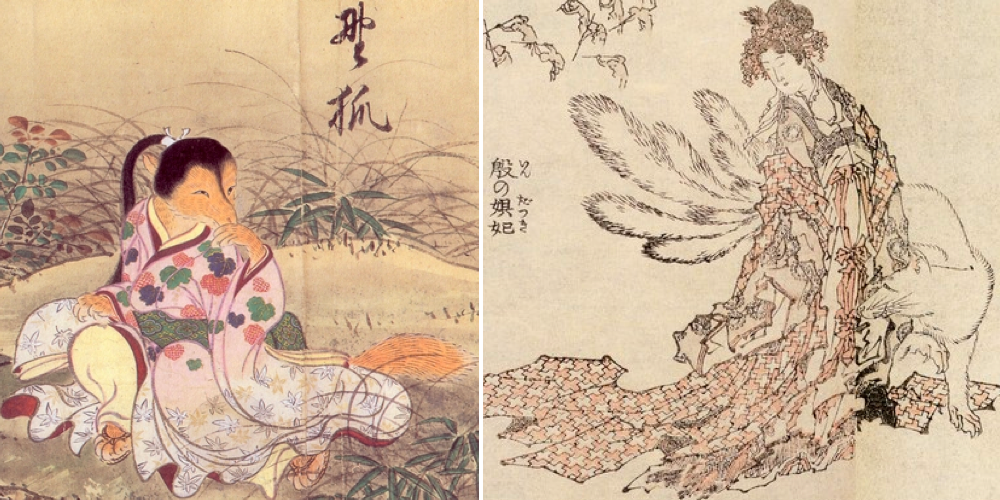 野狐
殷の妲妃
いん だつき